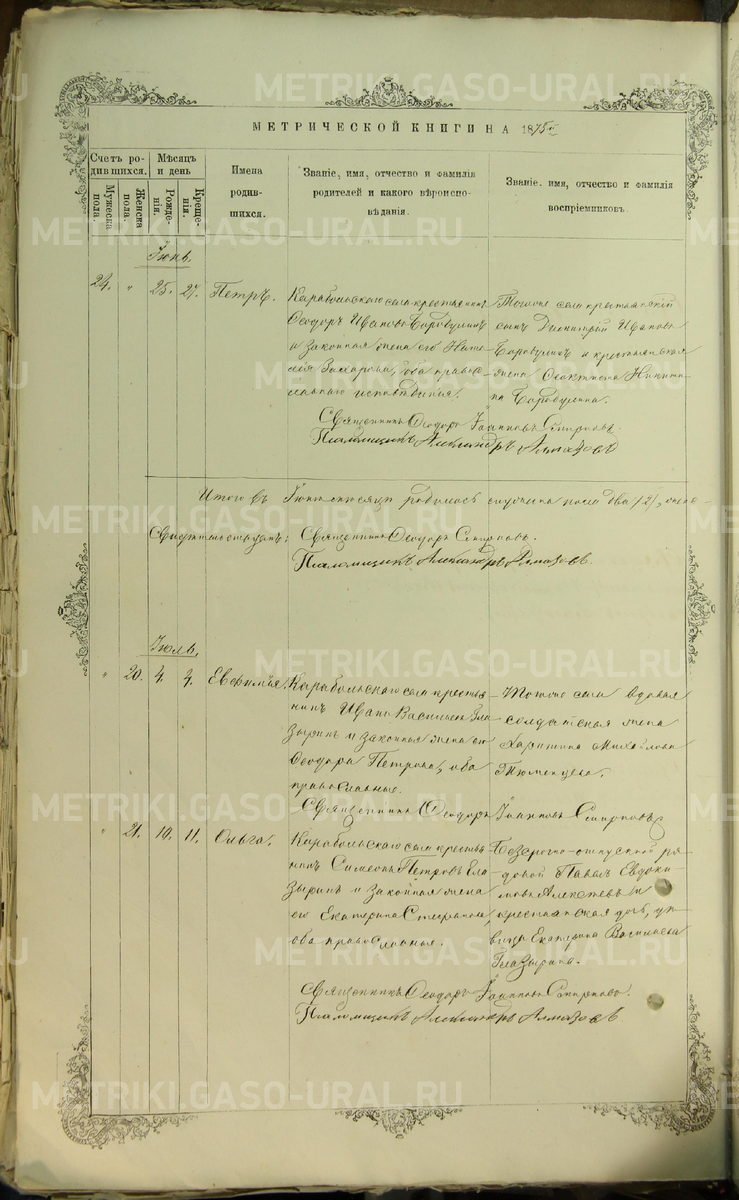 МЕТРИЧЕСКОЙ КНИГИ НА 1875
Счетъ родившихся.
Мѣсяцъ и день
Имена родившихся.
Званіе, имя, отчество и фамилія родителей и какого вѣроисповѣданія.
Званіе, имя, отчество и фамилія воспріемниковъ.
Мужеска пола.
Женска пола.
Рожденія.
Крещенія.
Іюнь.
24. " 25. 27. Петръ.
Карабольскаго села крестьянинъ
Ѳеодоръ Ивановъ
и законная жена его
Захарова, оба православнаго исповѣданія.
Тогоже села крестьянскій
сынъ Димитрій Ивановъ
и крестьянская
жена Ѳеоктиста Никитина
Священникъ Ѳеодоръ Іоанновъ Смирновъ.
Псаломщикъ Александръ Алмазовъ
Итого въ Іюнѣ мѣсяцѣ родилось мужеска пола два /2/,
Священникъ Ѳеодоръ Смирновъ.
Псаломщикъ Александръ Алмазовъ.
Іюль.
" 20. 4. Евфимія.
Карабольскаго села крестьянинъ
Иванъ Васильевъ Глазыринъ
и законная жена его
Ѳеодора Петрова, оба
православные.
Тогоже села вдовая
солдатская жена
Харитина Михайлова
Тюменцева.
Священникъ Ѳеодоръ Іоанновъ Смирновъ
" 21. 10. 11. Ольга.
Карабольскаго села крестьянинъ
Симеонъ Петровъ Глазыринъ
и законная жена
его Екатерина Стефанова,
оба православные.
Безсрочно-отпускной рядовой
Павелъ Евдокимовъ
Алексѣевъ и
крестьянская дочь, дѣвица
Екатерина Васильева
Глазырина.
Священникъ Ѳеодоръ Іоанновъ Смирновъ.
Псаломщикъ Александръ Алмазовъ
METRIKI.GASO-URAL.RU